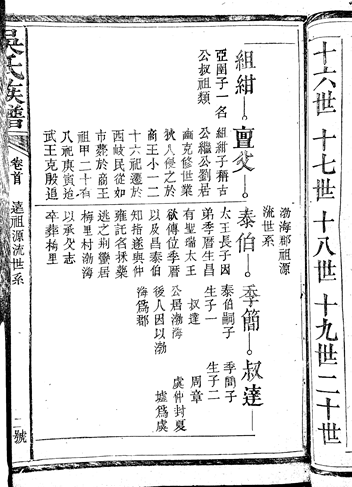 十六世 十七世 十八世 十九世 二十世
渤海郡祖源
流世系
組紺 亶父 泰伯 季簡 叔達
亞圉子一名 組紺子稽古 太王長子因 泰伯嗣子 季簡子
公叔祖類 公繼公劉居 弟季歷生昌 生子一 生子二
豳克修世業 有聖瑞太王 叔達 周章
狄人侵之於 欲傳位季歷 公居渤海 虞仲封夏
商王小一二 以及昌泰伯 後人因以渤 墟為虞
十六祀遷於 知指遂與仲 海為郡
西岐民從如 雍託名採藥
市薨於商王 逃之荆蠻居
祖甲二十 梅里村渤海
八祀庚寅 以承父志
武王克殷追 卒葬梅里
吳氏族譜 卷首 遠祖源流世系 二號